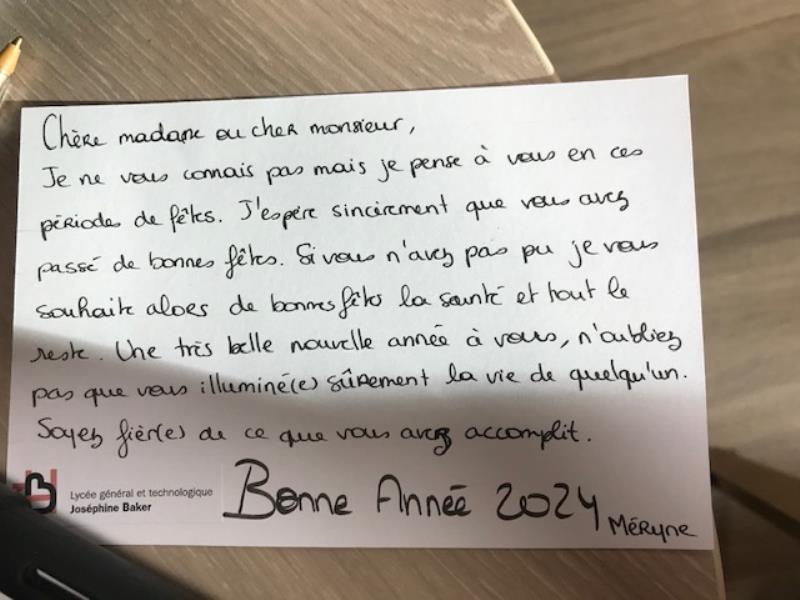 Chère madame ou cher monsieur,
Je ne vous connais pas mais je pense à vous en ces
périodes de fêtes. J'espère sincèrement que vous avez
passé de bonnes fêtes. Si vous n'avez pas pu je vous
souhaite alors de bonnes fêtes la santé et tout le
reste. Une très belle nouvelle année à vous, n'oubliez
pas que vous illuminé(e) sûrement la vie de quelqu'un.
Soyez fièr(e) de ce que vous avez accomplit.
Lycée général et technologique
Joséphine Baker
Bonne Année 2024
Méryne